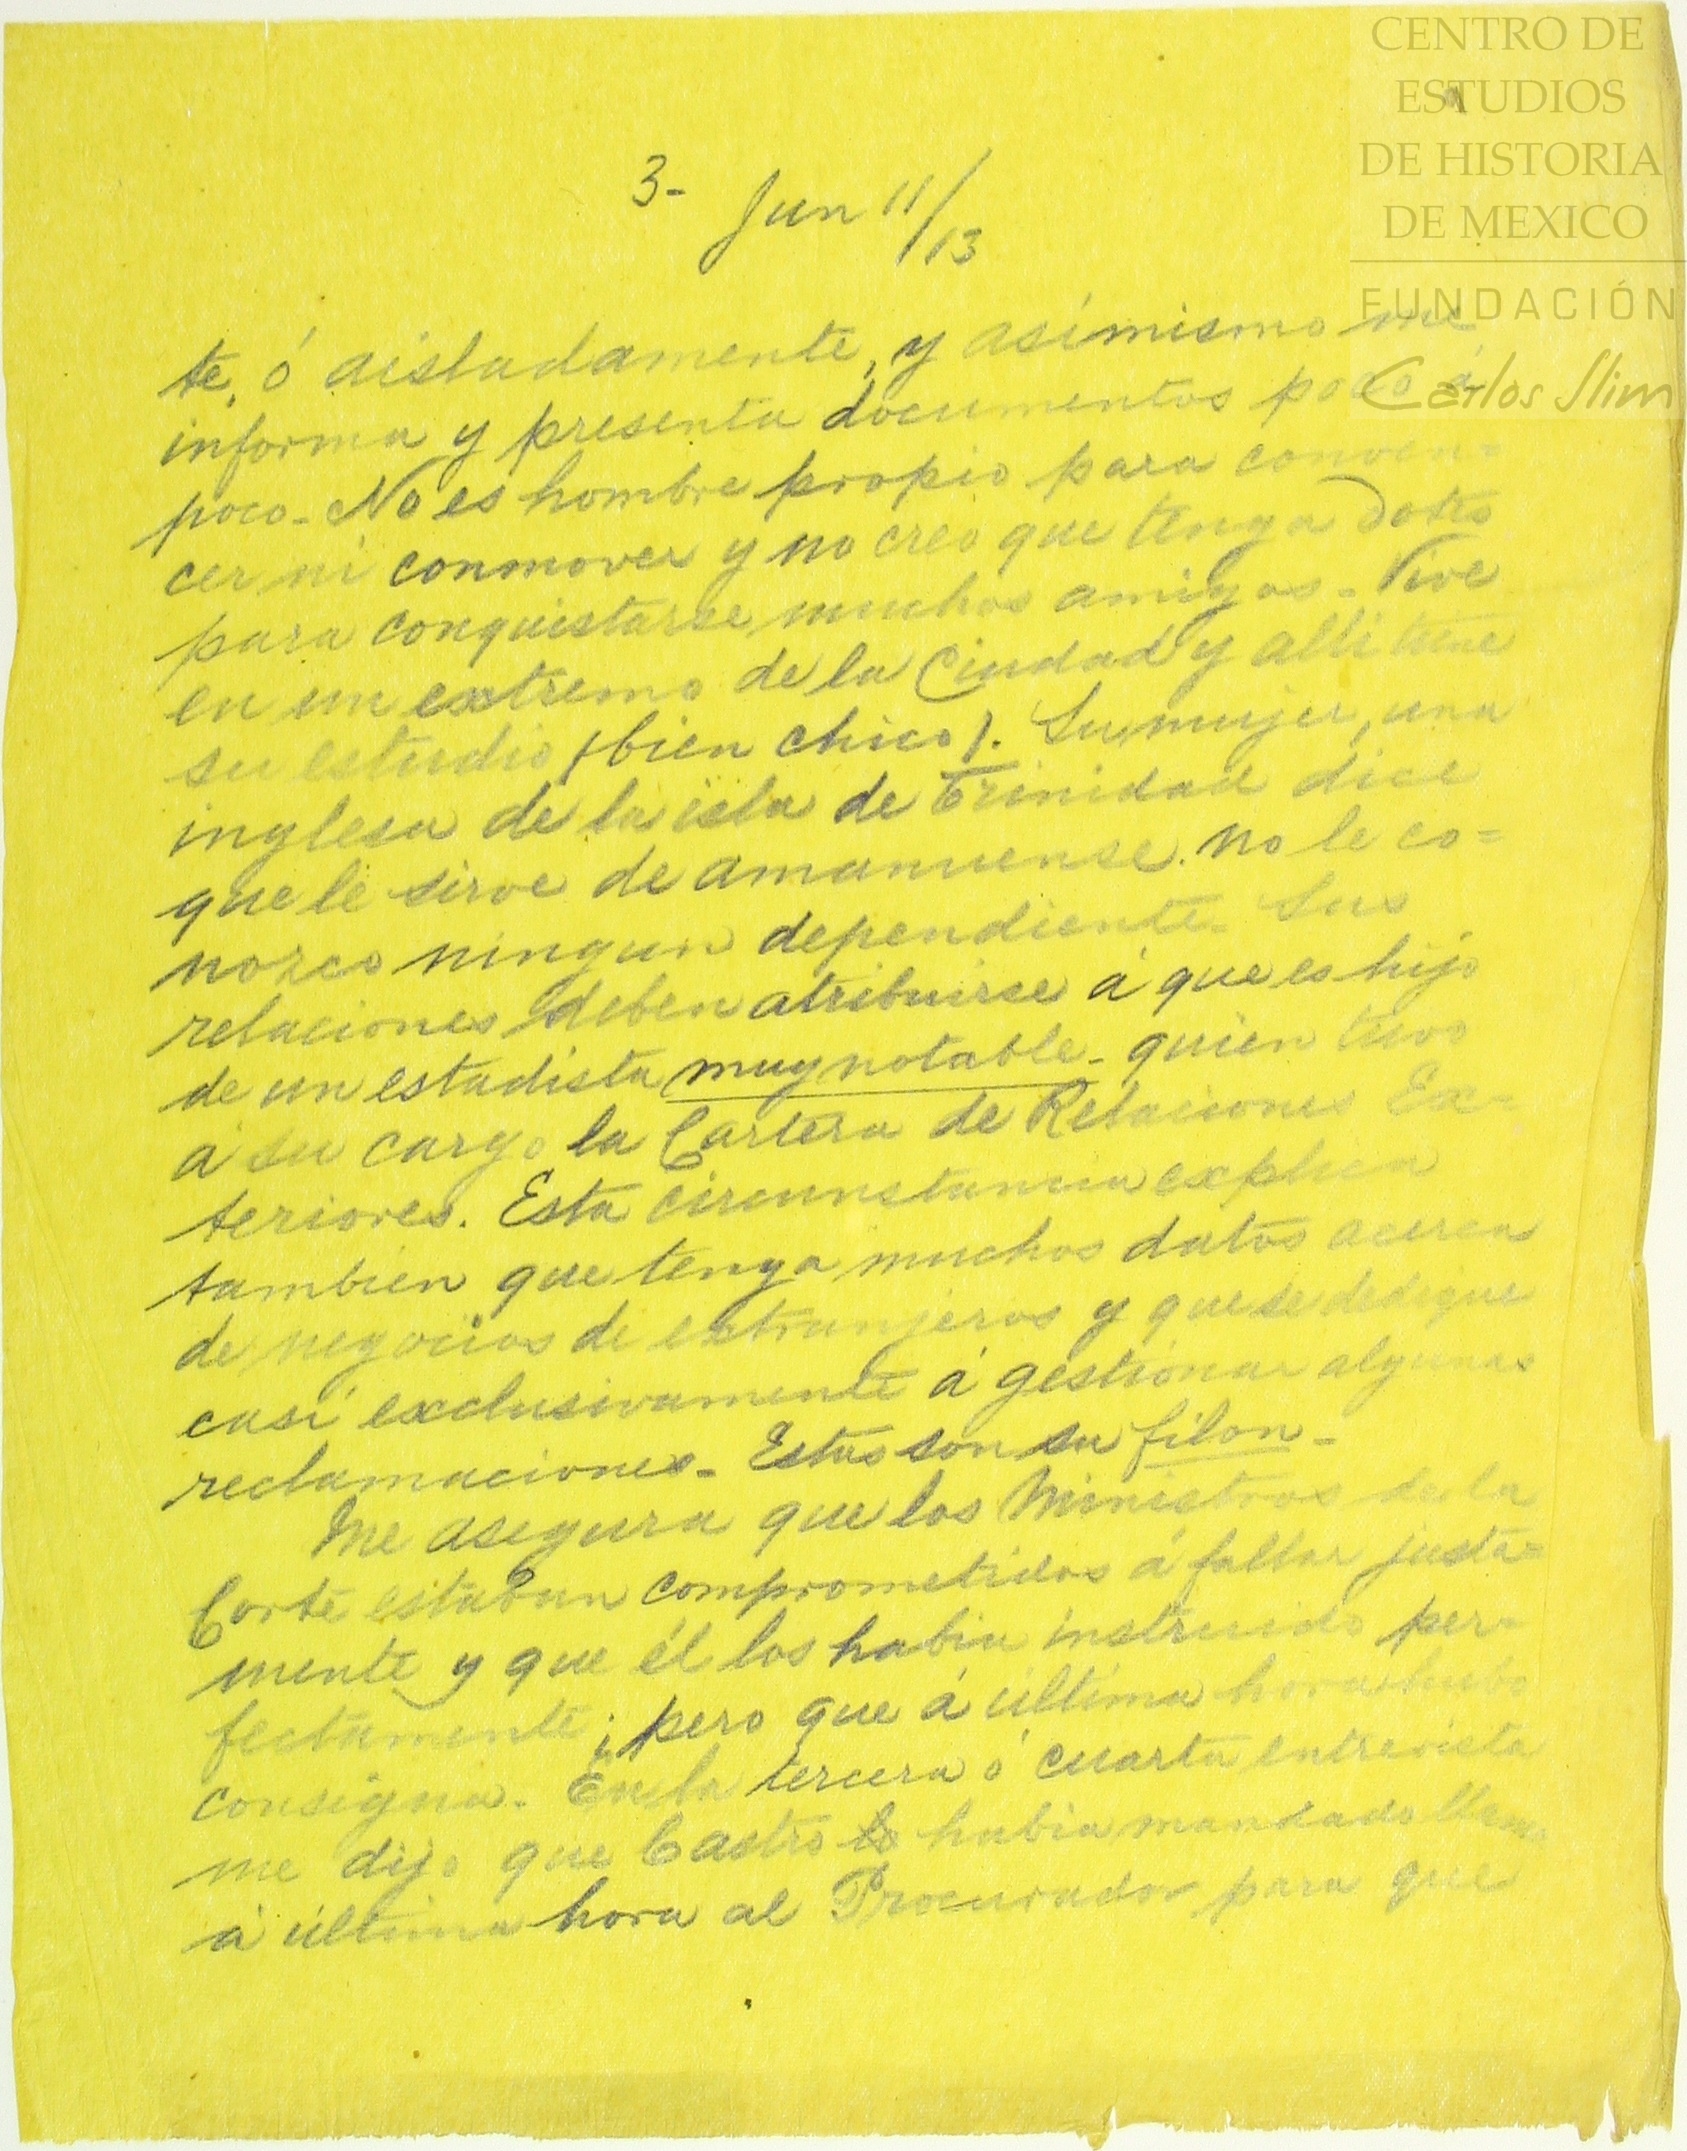 CENTRO DE
ESTUDIOS
DE HISTORIA
DE MEXICO
FUNDACIÓN
Carlos Slim
3- Jun 11/13
te, ó aisladamente, y asimismo me
informa y presenta documentos poco á
poco - No es hombre propio para conven-
cer ni conmover y no creo que tenga dotes
para conquistarse muchos amigos - Vive
en un extremo de la Ciudad y alli tiene
su estudio (bien chico). Su mujer, una
inglesa de la isla de Trinidad dice
que le sirve de amanuense. No le co=
nozco ningun dependiente - Sus
relaciones deben atribuirse á que es hijo
de un estadista muy notable - quien tuvo
á su cargo la Cartera de Relaciones Ex=
teriores. Esta circunstancia explica
tambien que tenga muchos datos acerca
de negocios de extranjeros y que se dedique
casi exclusivamente á gestionar algunas
reclamaciones - Estas son su filon -
Me asegura que los Ministros de la
Corte estaban comprometidos á fallar justa=
mente y que él los habia instruido per=
fectamente; pero que á última hora hubo
consigna. En la tercera ó cuarta entrevista
me dijo que Castro lo habia mandado llamar
á última hora al Procurador para que